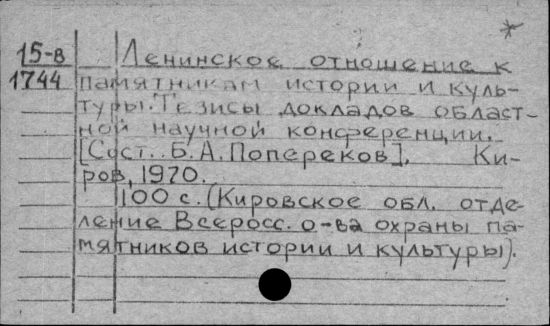 *
15-в Ленинское отношение к
1744 памятникам истории и куль-
туры. Тезисы докладов област-
ной научной конференции.
[Сост. Б. А. Попереков]. Ки-
ров, 1970.
100 с. (Кировское обл. отде-
ление Всеросс. о-ва охраны па-
мятников истории и культуры).